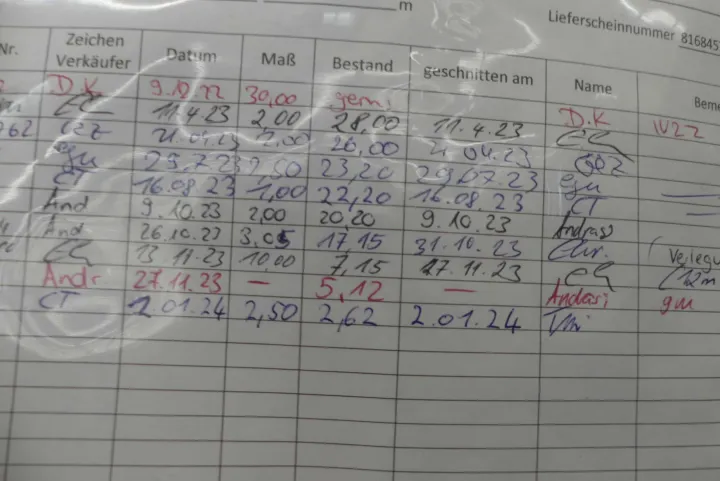 m
Lieferscheinnummer 816845
Nr. Zeichen Verkäufer Datum Maß Bestand geschnitten am Name Beme
D.K 9.10.22 30,00 gem. D.K 1022
CC 11.4.23 2,00 28,00 11.4.23 CC
262 21.04.23 2,00 26,00 21.04.23
gu 29.7.23 2,50 23,20 29.07.23 gu
CT 16.08.23 1,00 22,20 16.08.23 CT
And 9.10.23 2,00 20,20 9.10.23 Andrass
And 26.10.23 3,05 17,15 31.10.23 Chr. Verlegu
CC 13.11.23 10,00 7,15 27.11.23 CC
Andr 27.11.23 — 5,12 — gm
CT 2.01.24 2,50 2,62 2.01.24